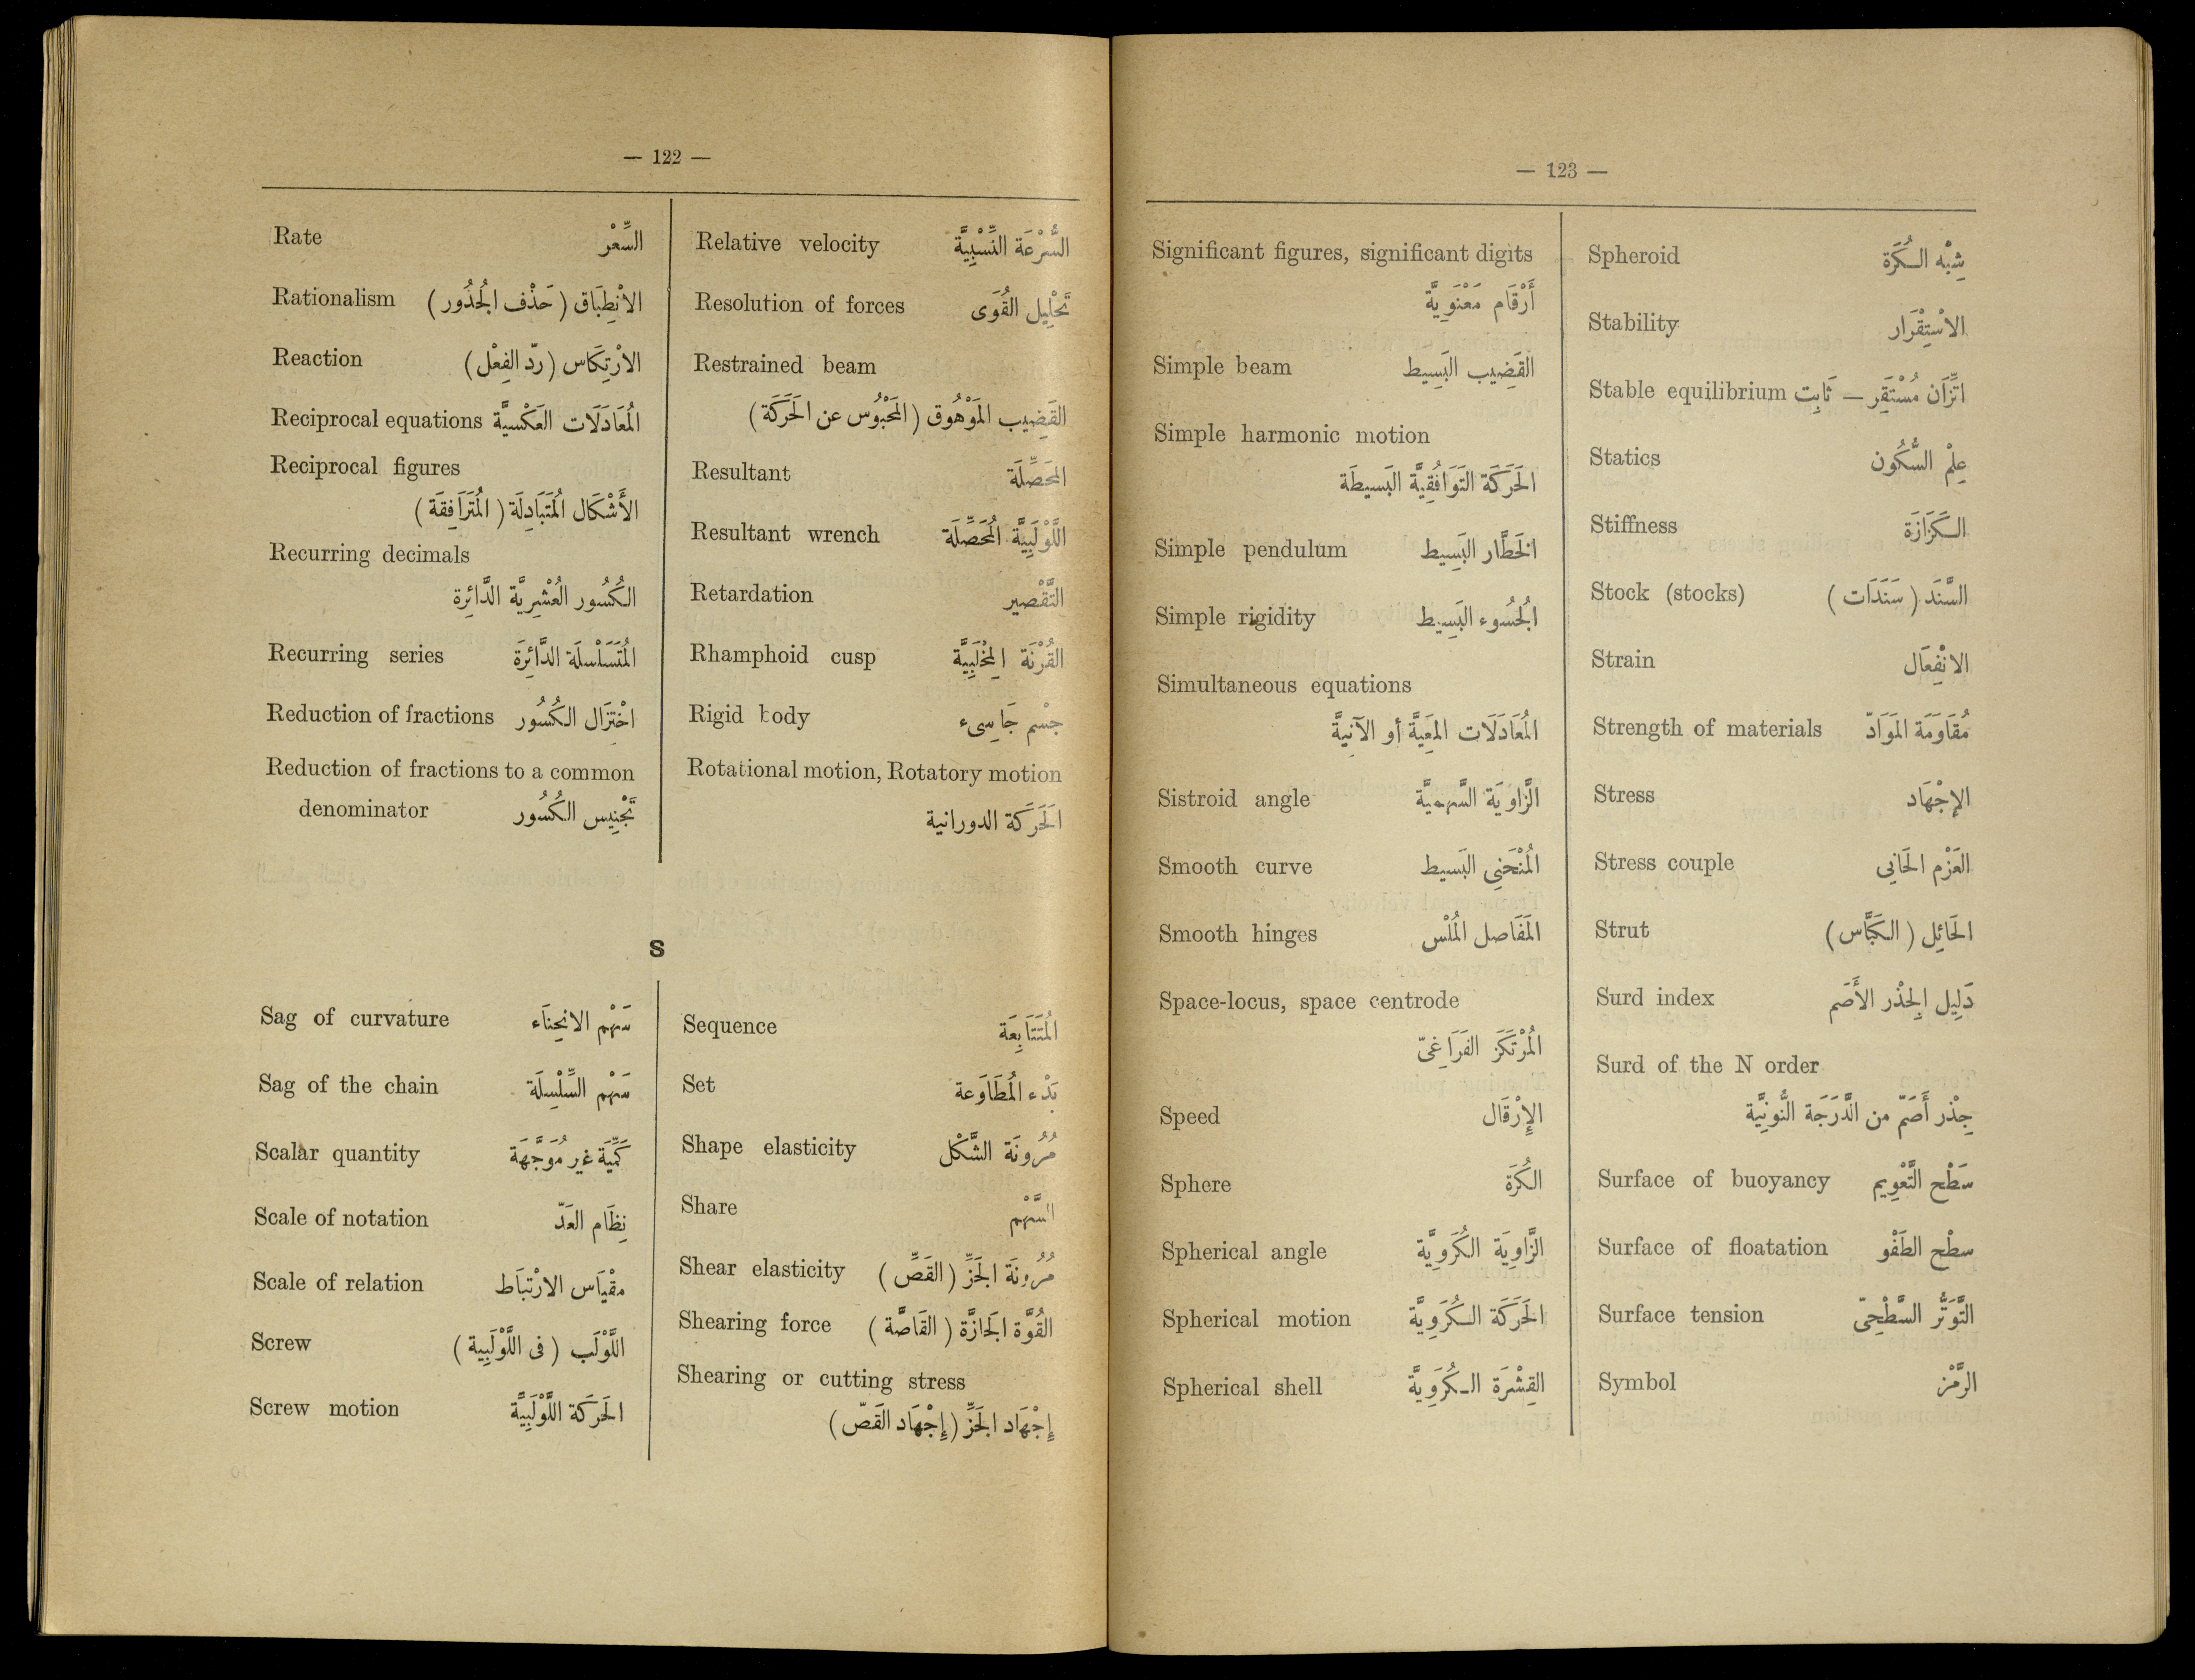 — 122 —
Rate السِّعْر
Rationalism الانْطِبَاق (حَذْف الجُذُور)
Reaction الارْتِكَاس (ردّ الفِعْل)
Reciprocal equations المُعَادَلَات العَكْسيَّة
Reciprocal figures
الأَشْكَال المُتَبَادِلَة (المُتَرَافِقَة)
Recurring decimals
الكُسُور العُشْرِيَّة الدَّائِرِة
Recurring series المُتَسَلْسلَة الدَّائِرَة
Reduction of fractions اخْتِزَال الكُسُور
Reduction of fractions to a common
denominator تَجْنِيس الكُسُور
Relative velocity السُّرْعَة النِّسْبِيَّة
Resolution of forces تَحْلِيل القُوَى
Restrained beam
القَضِيب المَوْهُوق (المَحْبُوُس عن الحَرَكَة)
Resultant المحَصِّلَة
Resultant wrench اللَّوْلَبِيَّة المُحَصِّلَة
Retardation التَّقْصير
Rhamphoid cusp القُرْنَة المِخْلَبِيَّة
Rigid body جْسْم جَاسِىء
Rotational motion, Rotatory motion
الَحَرَكَة الدورانية
S
Sag of curvature سَهْم الانحِنَاء
Sag of the chain سَهْم السِّلْسِلَة
Scalar quantity كَمِّيَة غير مُوَجَّهَة
Scale of notation نِظَام العَدّ
Scale of relation مقْيَاس الارْتبَاط
Screw اللَّوْلَب (فى اللَّوْلَبِية)
Screw motion الحَركَة اللَّوْلَبِيَّة
Sequence المُتَتَابِعَة
Set بَدْء المُطَاوَعة
Shape elasticity مُرُونَة الشَّكْل
Share السَّهْم
Shear elasticity مُرُونَة الجَزِّ (القَصِّ)
Shearing force القُوَّة الجَازَّة (القَاصَّة)
Shearing or cutting stress
إِجْهَاد الجَزِّ (إِجْهَاد القَصّ)
— 123 —
Significant figures, significant digits
أَرْقَام مَعْنَوِيَّة
Simple beam القَضِيب البَسِيط
Simple harmonic motion
الحَرَكَة التَوَافُقِيَّة البَسيطَة
Simple pendulum الخَطَّار البَسِيط
Simple rigidity الجُسُوء البَسِيط
Simultaneous equations
المُعَادَلَات المَعِيَّة أو الآنيَّة
Sistroid angle الزَّاويَة السَّهميَّة
Smooth curve المُنْحَنِى البَسيط
Smooth hinges المَفَاصل المُلْس
Space-locus, space centrode
المُرْتَكَز الفَرَاغىّ
Speed الإِرْقَال
Sphere الكُرَة
Spherical angle الزَّاوِيَة الكُرَوِيَّة
Spherical motion الحَرَكَة الكُرَوِيَّة
Spherical shell القِشْرَة الكُرَوِيَّة
Spheroid شِبْه الكُرَة
Stability الاسْتِقْرَار
Stable equilibrium اتِّزَان مُسْتَقِر — ثَابِت
Statics عِلْم السُّكُون
Stiffness الكَزَازَة
Stock (stocks) السَّنَد (سَنَدَات)
Strain الانْفِعَال
Strength of materials مُقَاوَمَة المَوَادّ
Stress الإجْهَاد
Stress couple العَزْم الحَانِى
Strut الحَائِل (الكَبَّاس)
Surd index دَلِيل الجِذْر الأَصَم
Surd of the N order
جِذْر أَصَمّ من الدَّرَجَة النُّونِيَّة
Surface of buoyancy سَطْح التَّعْوِيم
Surface of floatation سطْح الطَفْو
Surface tension التَّوَتُّر السَّطْحِىّ
Symbol الرَّمْز